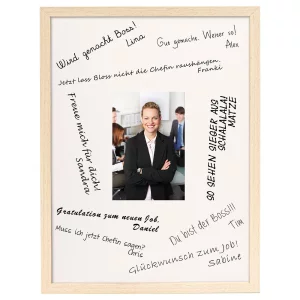 Wird gemacht Boss!
Lina
Gut gemacht. Weiter so!
Alex
Jetzt lass Bloss nicht die Chefin raushängen.
Franzi
Freue mich für dich!
Sandra
SO SEHEN SIEGER AUS
SCHALALALA!
MATZE
Gratulation zum neuen Job.
Daniel
Muss ich jetzt Chefin sagen?
Chris
Du bist der Boss!!!
Tim
Glückwunsch zum Job!
Sabine